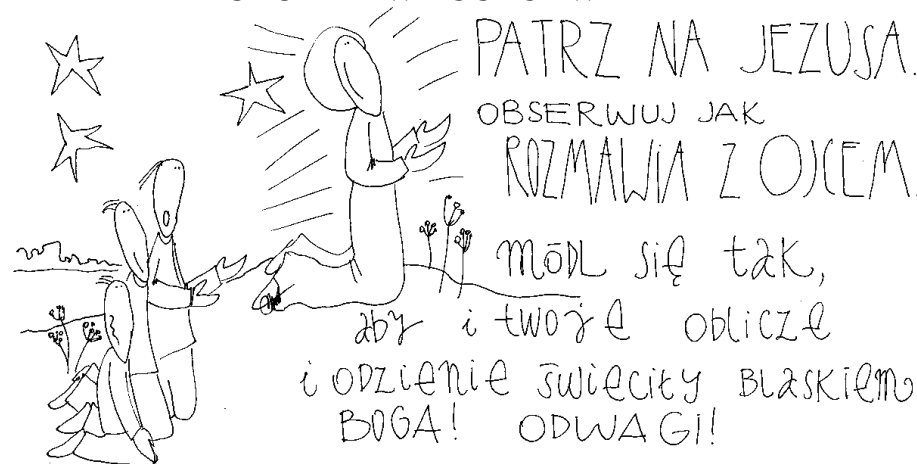 PATRZ NA JEZUSA.
OBSERWUJ JAK
ROZMAWIA Z OJCEM.
MÓDL SIĘ tak,
aby i twoje oblicze
i odzienie świeciły BLASKIEM
BOGA! ODWAGI!